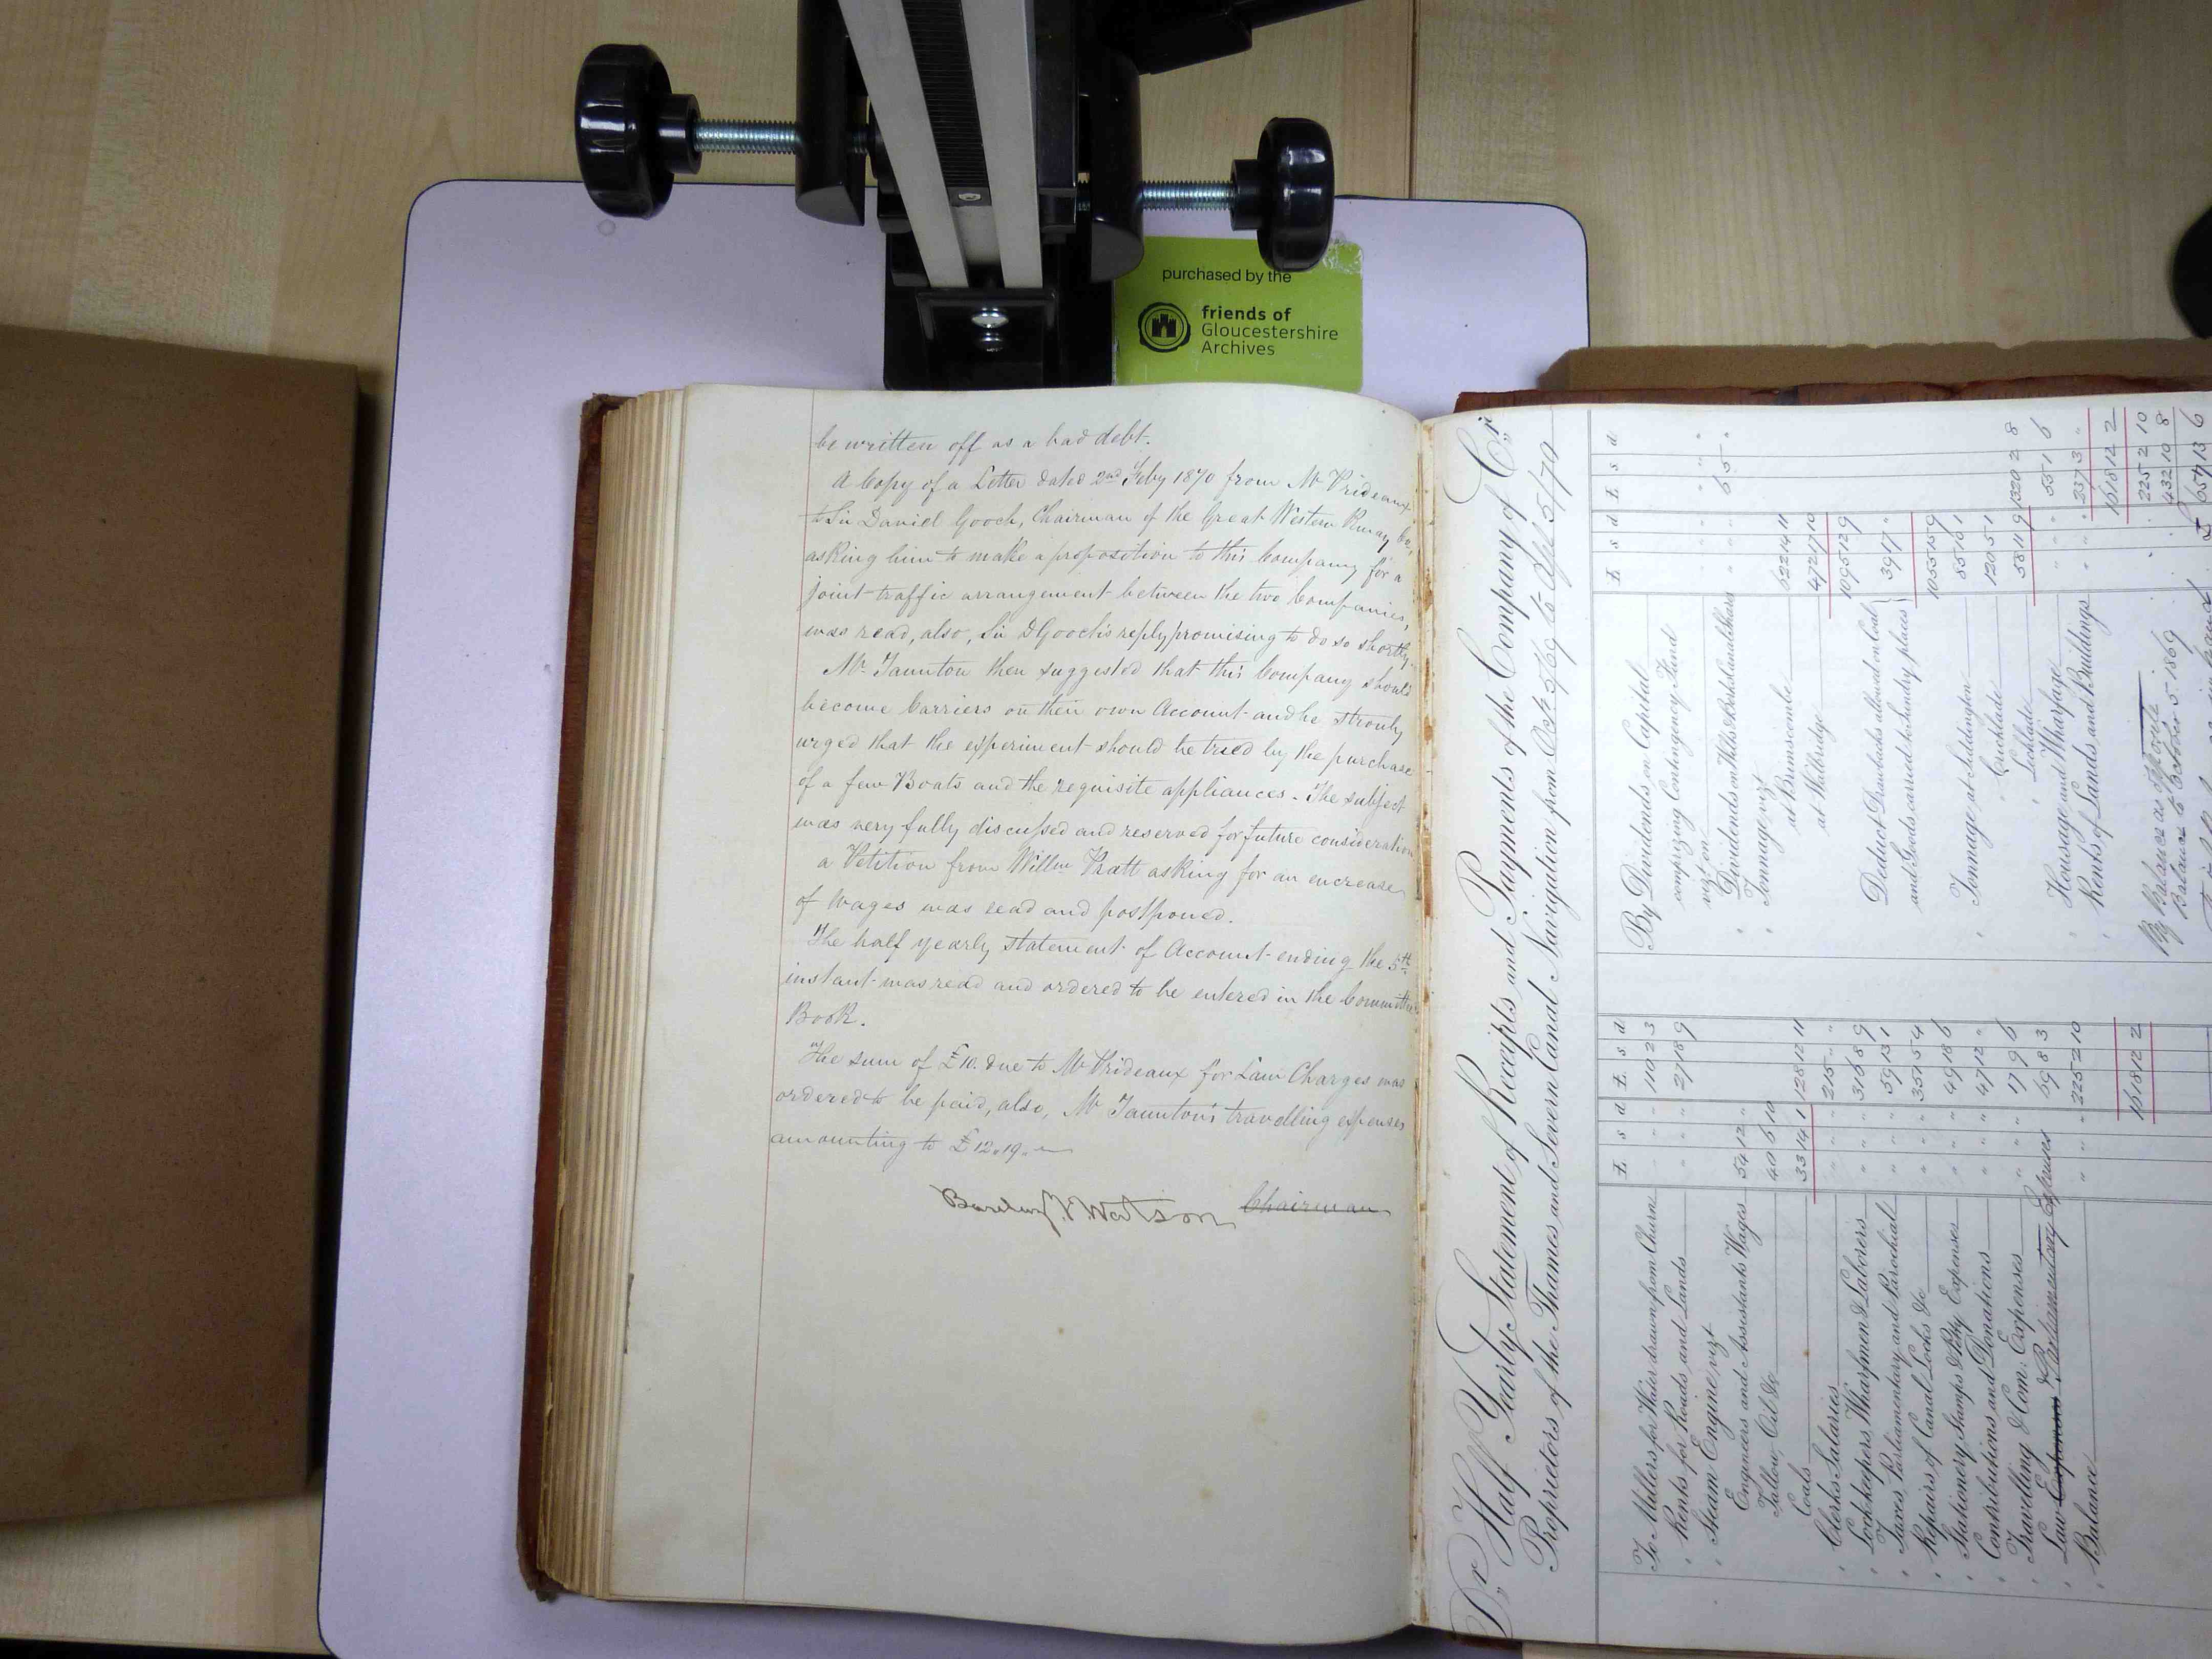 purchased by the
friends of
Gloucestershire
Archives
be written off as a bad debt.
A Copy of a Letter dated 2nd Feby 1870 from Mr Prideaux
to Sir Daniel Gooch, Chairman of the Great Western Rway Co,
asking him to make a proposition to this Company for a
joint traffic arrangement between the two Companies,
was read, also, Sir D Gooch's reply promising to do so shortly.
Mr Taunton then suggested that this Company should
become Carriers on their own Account and he stronly
urged that the experiment should be tried by the purchase
of a few Boats and the requisite appliances. The subject
was very fully discussed and reserved for future consideration
a Petition from Willm Pratt asking for an encrease
of Wages was read and postponed.
The half yearly statement of Account ending the 5th
instant was read and ordered to be entered in the Committee
Book.
The sum of £10. due to Mr Prideaux for Law Charges was
ordered to be paid, also, Mr Taunton's travelling expenses
amounting to £12.,19.,-
Watson Chairman
Dr Half Yearly Statement of Receipts and Payments of the Company of Cr
Proprietors of the Thames and Severn Canal Navigation from Oct 5/69 to Apl 5/70
£ s d £ s d
To Millers for Water drawn from Churn " " " 110 2 3
" Rents for Roads and Lands " " " 27 18 9
" Steam Engine, vizt
Engineers and Assistants Wages 54 12 "
Tallow, Oil &c 40 5 10
Coals 33 14 1 128 12 11
" Clerks Salaries " " " 215 " "
" Lockkeepers Wharfmen & Laborers " " " 316 8 9
" Taxes, Parliamentary and Parochial " " " 59 13 1
" Repairs of Canal Locks &c " " " 351 5 4
" Stationery Stamps & Petty Expenses " " " 49 18 6
" Contributions and Donations " " " 47 12 "
" Travelling & Com: Expenses " " " 17 9 6
" Law Expenses & Parliamentary Expenses 59 8 3
" Balance " " " 225 2 10
1618 12 2
£ s d £ s d
By Dividends on Capital
comprizing Contingency Fund
vizt on
" Dividends on Wilts & Berks Canal Shares " " " 5 5 "
" Tonnage vizt
at Brimscombe 622 14 11
at Wallbridge 472 17 10
1095 12 9
Deduct Drawbacks allowed on Coal
and Goods carried to sundry places 39 17 "
1055 15 9
" Tonnage at Chiddington 85 10 1
" Cricklade 120 5 1
" Lechlade 58 11 9 1320 2 8
" Housage and Wharfage " " " 55 1 6
" Rents of Lands and Buildings " " " 237 3 "
1618 12 2
By Balance as above 225 2 10
Balance to October 5 1869 432 10 8
£ 657 13 6